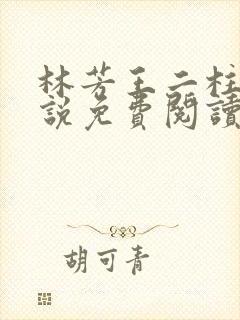 林芳王二柱
説免費閱讀
胡可青